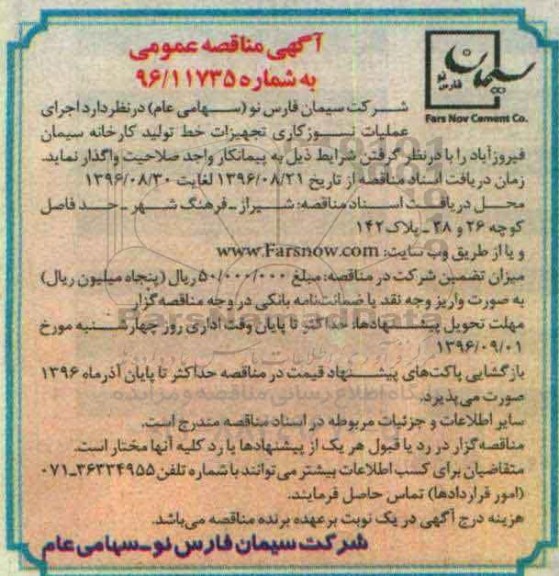 آگهی مناقصه عمومی
به شماره ۹۶/۱۱۷۳۵
سیمان
فارس نو
Fars Nov Cement Co.
شرکت سیمان فارس نو (سهامی عام) در نظر دارد اجرای
عملیات نسوزکاری تجهیزات خط تولید کارخانه سیمان
فیروزآباد را با در نظر گرفتن شرایط ذیل به پیمانکار واجد صلاحیت واگذار نماید.
زمان دریافت اسناد مناقصه از تاریخ ۱۳۹۶/۰۸/۲۱ لغایت ۱۳۹۶/۰۸/۳۰
محل دریافت اسناد مناقصه: شیراز ـ فرهنگ شهر ـ حد فاصل
کوچه ۲۶ و ۲۸ ـ پلاک ۱۴۲
و یا از طریق وب سایت: www.Farsnow.com
میزان تضمین شرکت در مناقصه: مبلغ ۵۰/۰۰۰/۰۰۰ ریال (پنجاه میلیون ریال)
به صورت واریز وجه نقد یا ضمانت‌نامه بانکی در وجه مناقصه‌گزار
مهلت تحویل پیشنهادها: حداکثر تا پایان وقت اداری روز چهارشنبه مورخ
۱۳۹۶/۰۹/۰۱
بازگشایی پاکت‌های پیشنهاد قیمت در مناقصه حداکثر تا پایان آذرماه ۱۳۹۶
صورت می‌پذیرد.
سایر اطلاعات و جزئیات مربوطه در اسناد مناقصه مندرج است.
مناقصه‌گزار در رد یا قبول هر یک از پیشنهادها یا رد کلیه آنها مختار است.
متقاضیان برای کسب اطلاعات بیشتر می‌توانند با شماره تلفن ۳۶۳۳۴۹۵۵-۰۷۱
(امور قراردادها) تماس حاصل فرمایند.
هزینه درج آگهی در یک نوبت بر عهده برنده مناقصه می‌باشد.
شرکت سیمان فارس نو ـ سهامی عام
ParsNamadData